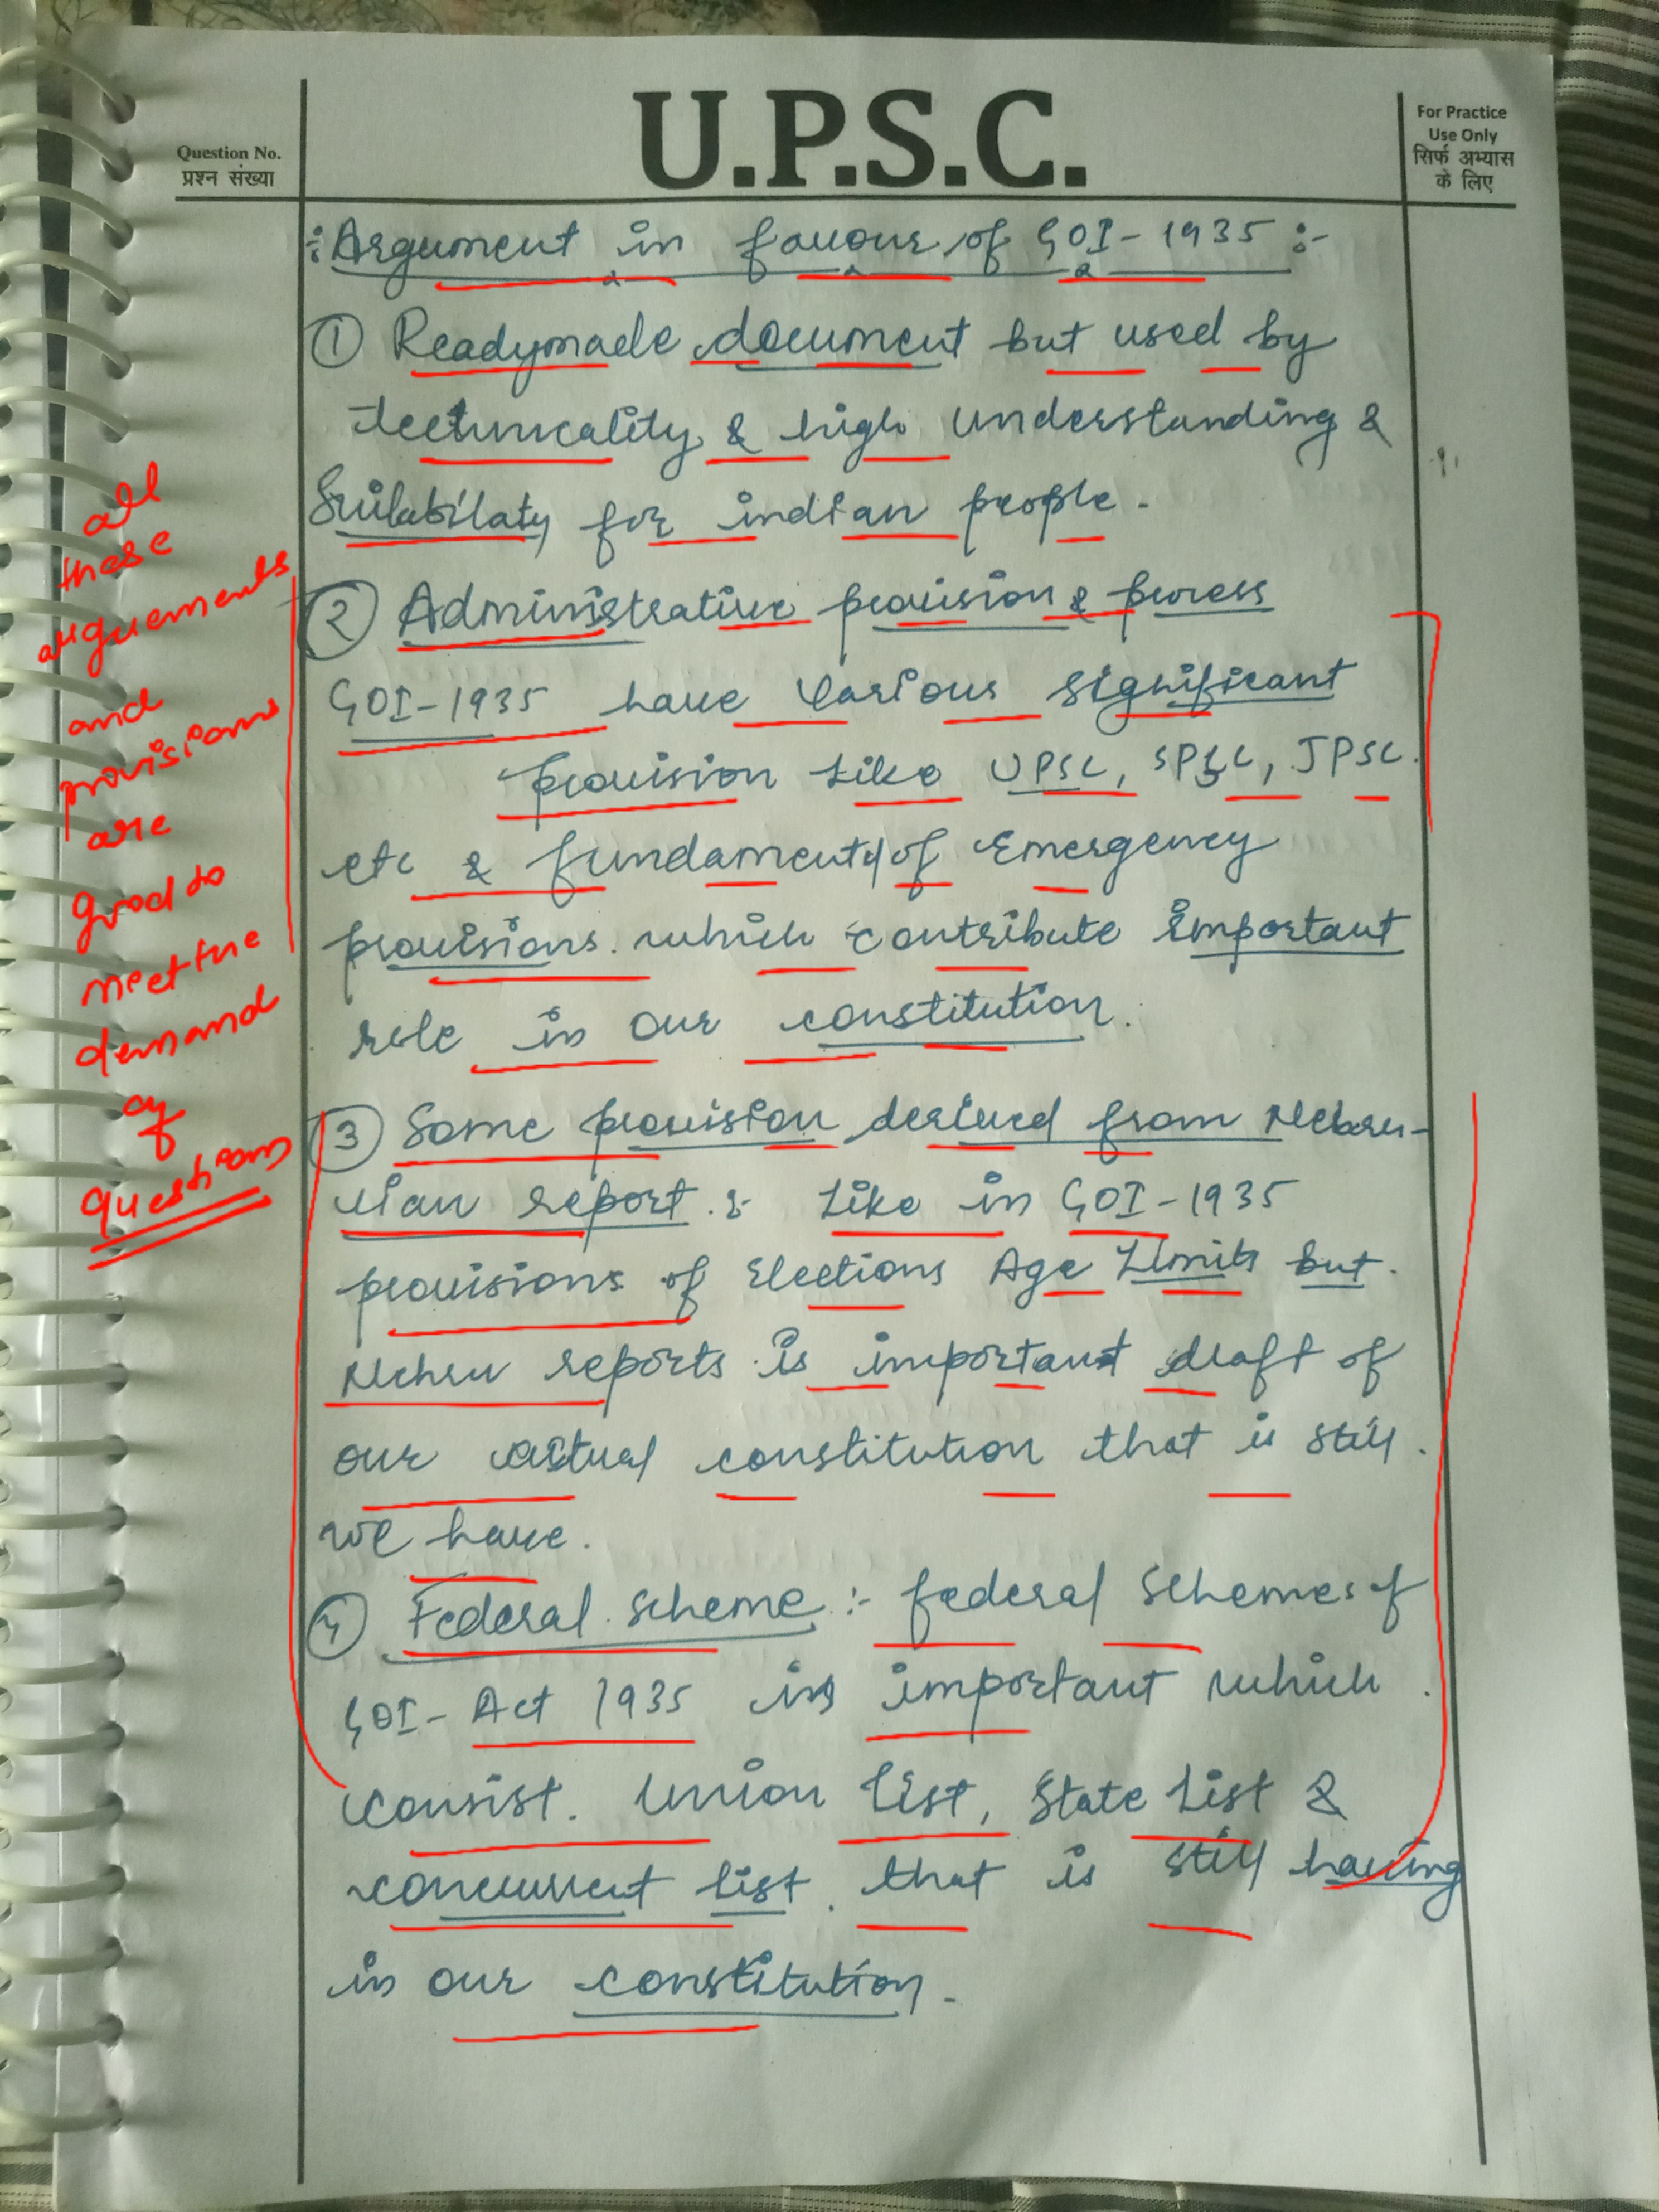 U.P.S.C.
Question No.
प्रश्न संख्या
For Practice
Use Only
सिर्फ अभ्यास
के लिए
:Argument in favour of GOI-1935 :-
① Readymade document but used by
technicality & high understanding &
Suilabilaty for indian people.
② Administrative provision & process
GOI-1935 have various significant
provision like UPSC, SPSC, JPSC.
etc & fundamently of Emergency
provisions which contribute important
role in our constitution.
③ Some provision derived from Nehru-
vian report :- Like in GOI-1935
provisions of Elections Age Limits but
Nehru reports is important draft of
our actual constitution that is still
we have.
④ Federal scheme :- federal schemes of
GOI- Act 1935 is important which
consist. Union List, State List &
concurrent list that is still having
in our constitution.
all
these
arguements
and
provisions
are
good to
meet the
demand
of
questions